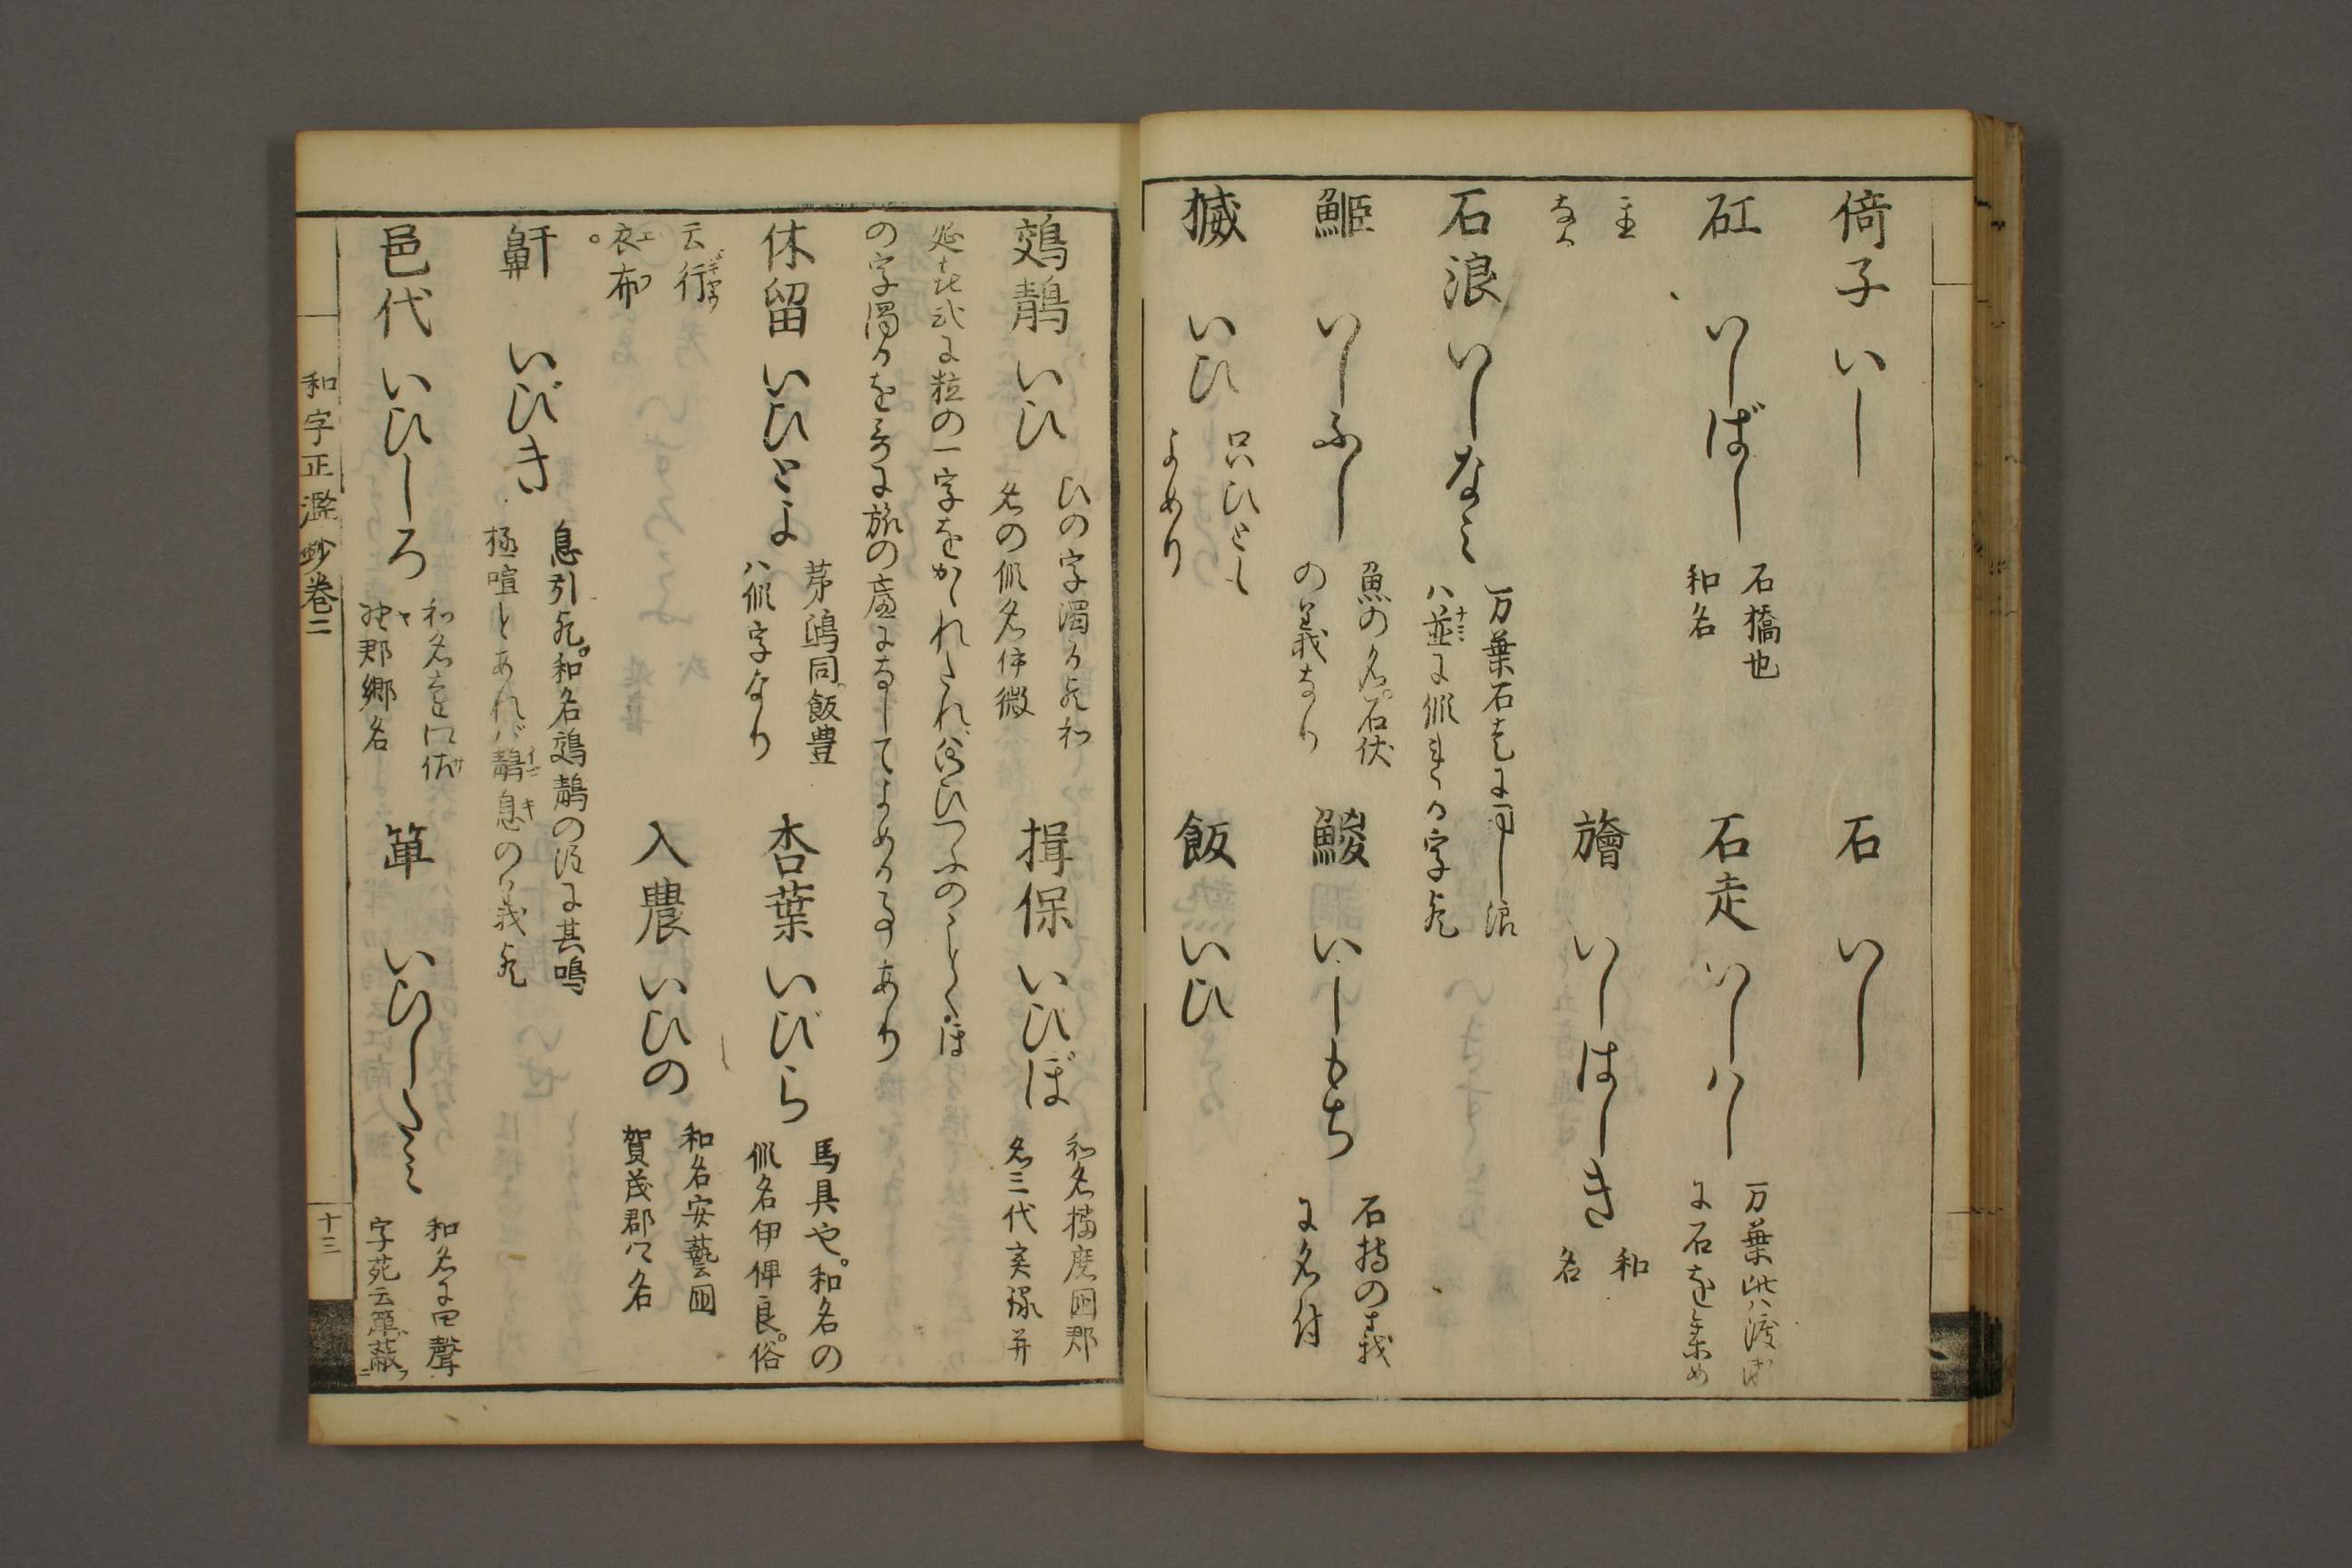 倚子 いし
石 いし
矼 いしばし
石橋也
和名
石走 いしハし
万葉此ハ渡せ
に石を集め
主
なへ
旝 いしはしき
和
名
石浪 いしなミ
万葉石走に同し浪
ハ並に仮
る字也
䱌 いしふし
魚の名。石伏
の義なり
鯪 いしもち
石持の義
に名付
いひ
只いひとも
よめり
飯 いひ
鵼鶄 いひ
ひの字濁る也和
名の仮名伊微
揖保 いひぼ
和名播磨国郡
名三代実録并
延喜式に粒の一字をかゝれたれバいひつふのことく。ほ
の字濁るを哥に旅の庵になしてよめる事あり
休留 いひとよ
茅鴟同。飯豊
ハ仮字なり
杏葉 いびら
馬具や。和名の
仮名伊俾良。俗
云行
衣布
入農 いひの
和名安藝国
賀茂郡郷名
鼾 いびき
息引也。和名鵼鶄の注に其鳴
極喧とあれバ鶄息の義也
邑代 いひしろ
和名遠江佐
野郡郷名
箄 いひしたミ
和名に四聲
字苑云箄蔽
和字正濫鈔巻二
十三